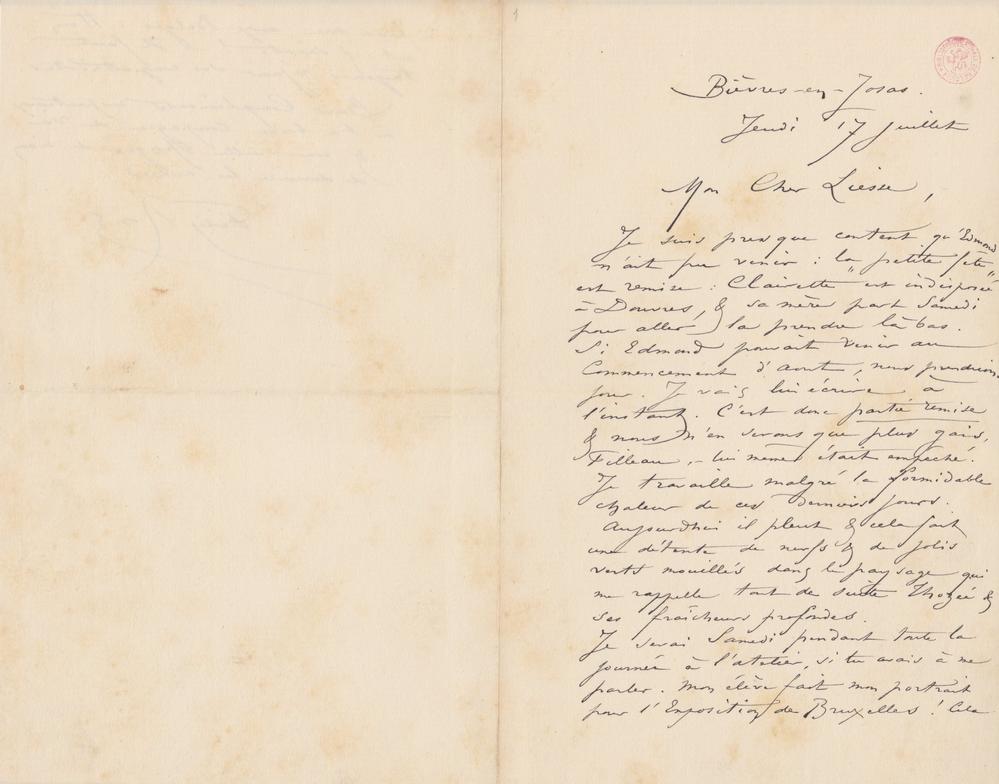 1
Bièvres-en-Josas.
Jeudi 17 Juillet
Mon Cher Liesse,
Je suis presque content qu'Edmond
n'ait pu venir : la petite "fête"
est remise : Clairette est indisposée
à Douvres, & sa mère part Samedi
pour aller la prendre là bas.
Si Edmond pouvait venir au
Commencement d'aout, nous prendrions
jour. Je vais lui écrire à
l'instant. C'est donc partie remise
& nous n'en serons que plus gais,
Filleau, - lui même était empeché.
Je travaille malgré la formidable
chaleur de ces derniers jours.
Aujourdhui il pleut & cela fait
une détente de nerfs & de jolis
verts mouillés dans le paysage qui
me rappelle tout de suite Thozée &
ses fraîcheurs profondes.
Je serai Samedi pendant toute la
journée à l'atelier, si tu avais à me
parler. Mon élève fait mon portrait
pour l'Exposition de Bruxelles ! Cela